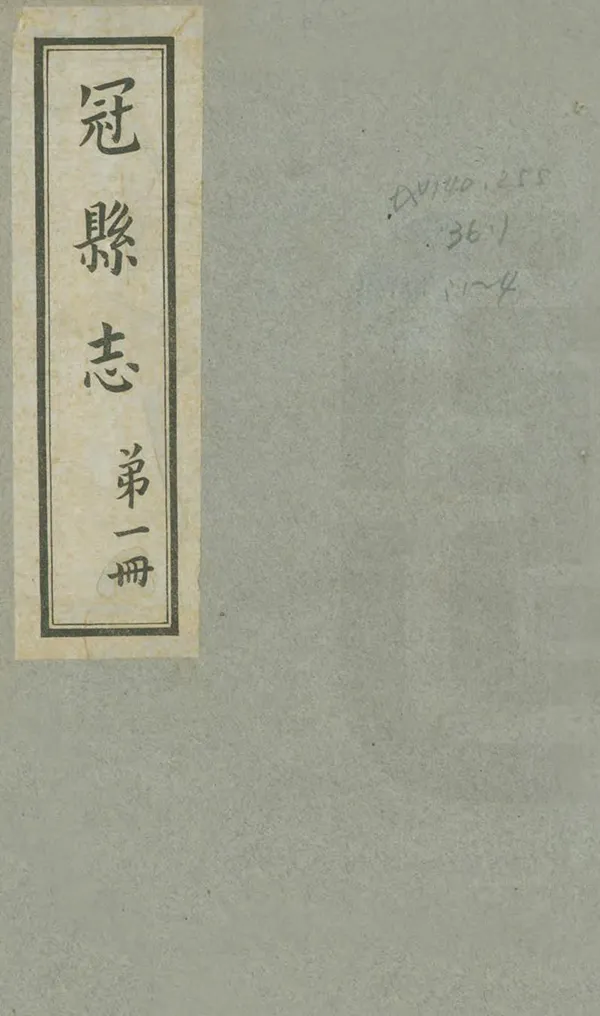 冠縣志
弟一冊
140.255
36.1
:1~4